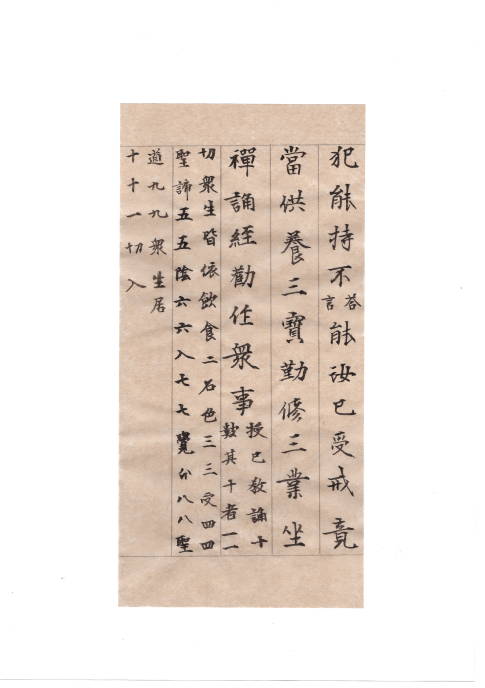 犯能持不答言能汝已受戒竟
當供養三寶勤修三業坐
禪誦經勸作眾事授已教誦十數其十者一一
切衆生皆依飲食二名色三三受四四
聖諦五五陰六六入七七覺分八八聖
道九九衆生居
十十一切入